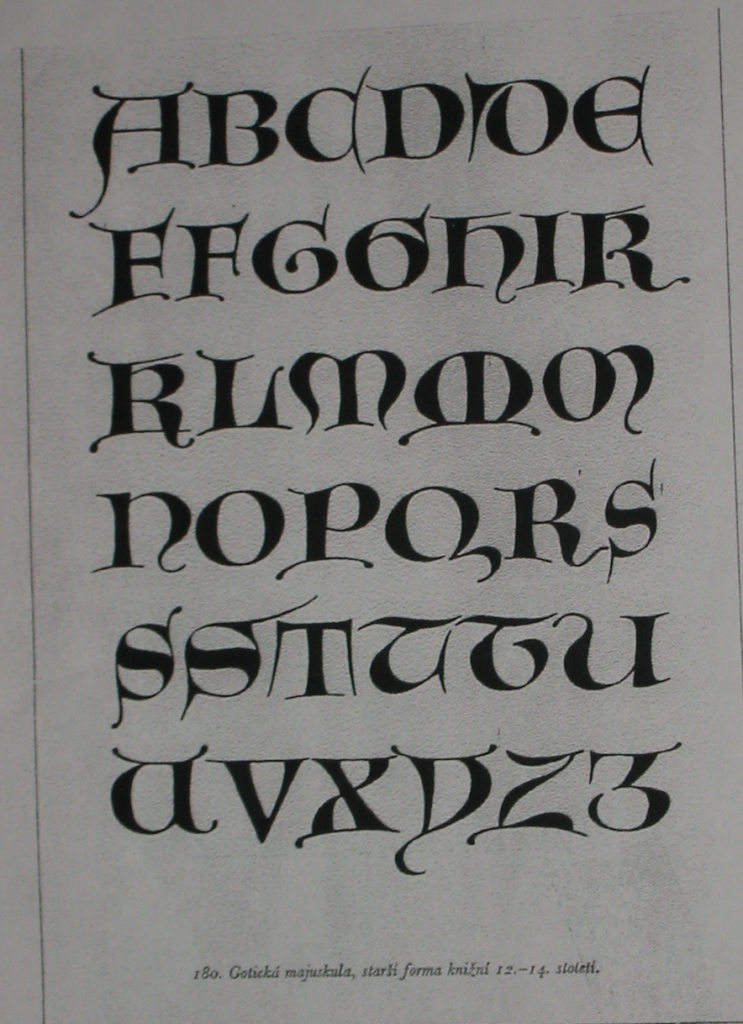 ABCDDE
FFGGHIK
KLMMM
NOPQRS
SSTTTU
UVXYZZ
180. Gotická majuskula, starší forma knižní 12.–14. století.